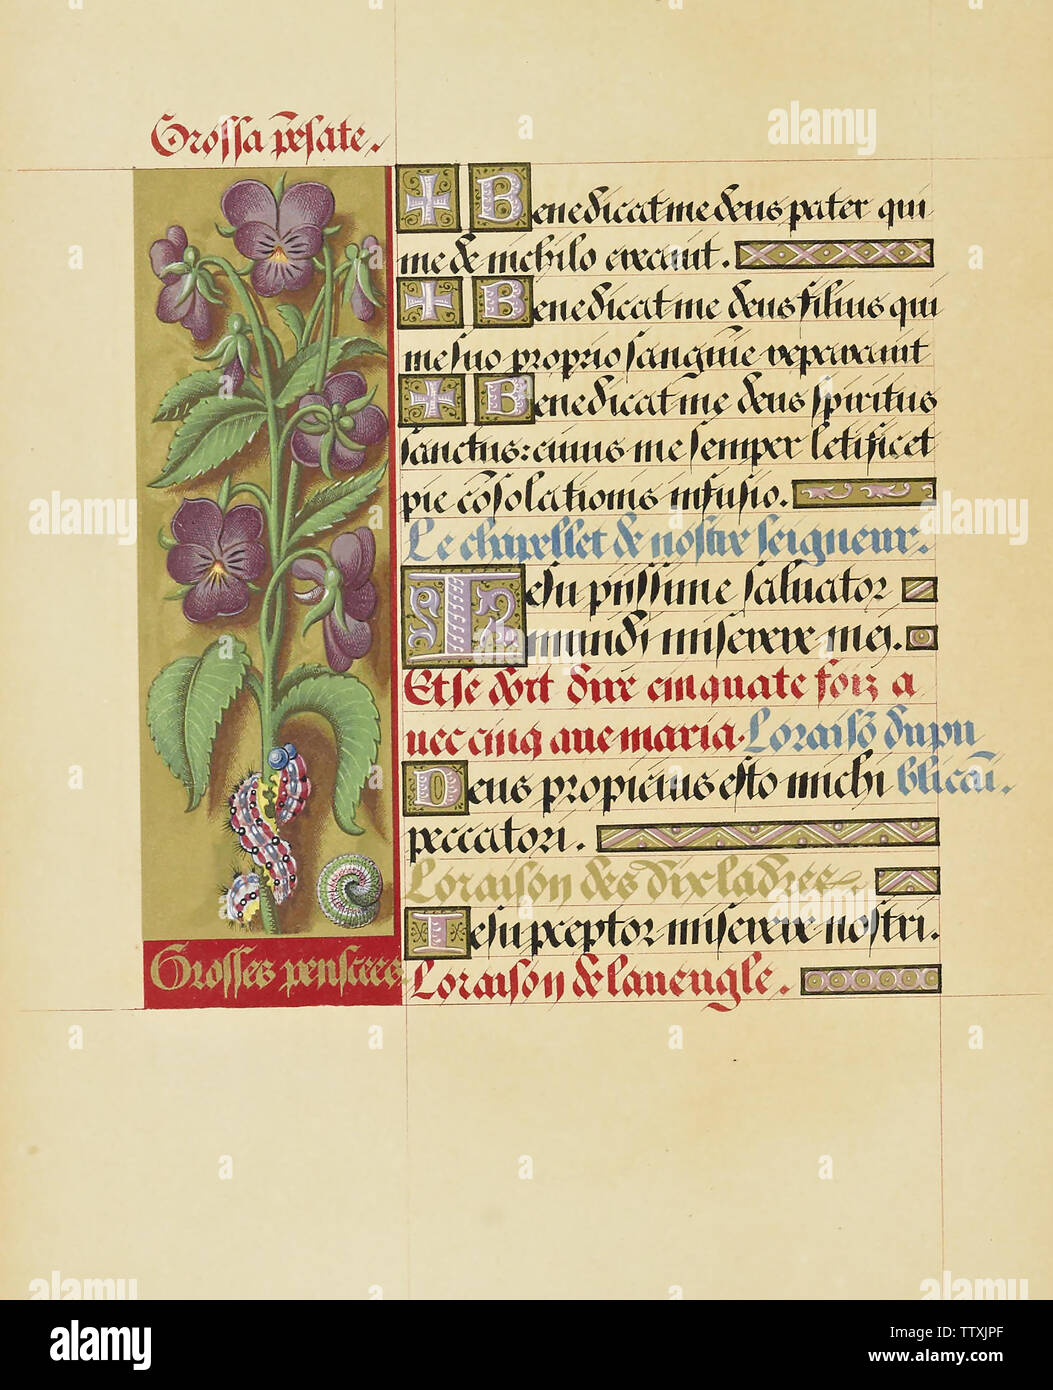 Grossa pēsate.
+ Benedicat me deus pater qui
me de nichilo creauit.
+ Benedicat me deus filius qui
me suo proprio sanguīe reparauit
+ Benedicat me deus spiritus
sanctus: cuius me semper letificet
pie cōsolationis infusio.
Le chapellet de nostre seigneur.
Iesu piissime saluator
mundi miserere mei.
Et se doit dire cinquate foiz a
uec cinq aue maria. Loraisō du pu
Deus propicius esto michi blicaī.
peccatori.
Loraison des dix ladres.
Iesu preceptor miserere nostri.
Grosses pensees
Loraison de laueugle.
alamy
a
alamy
Image ID: TTXJPF
www.alamy.com